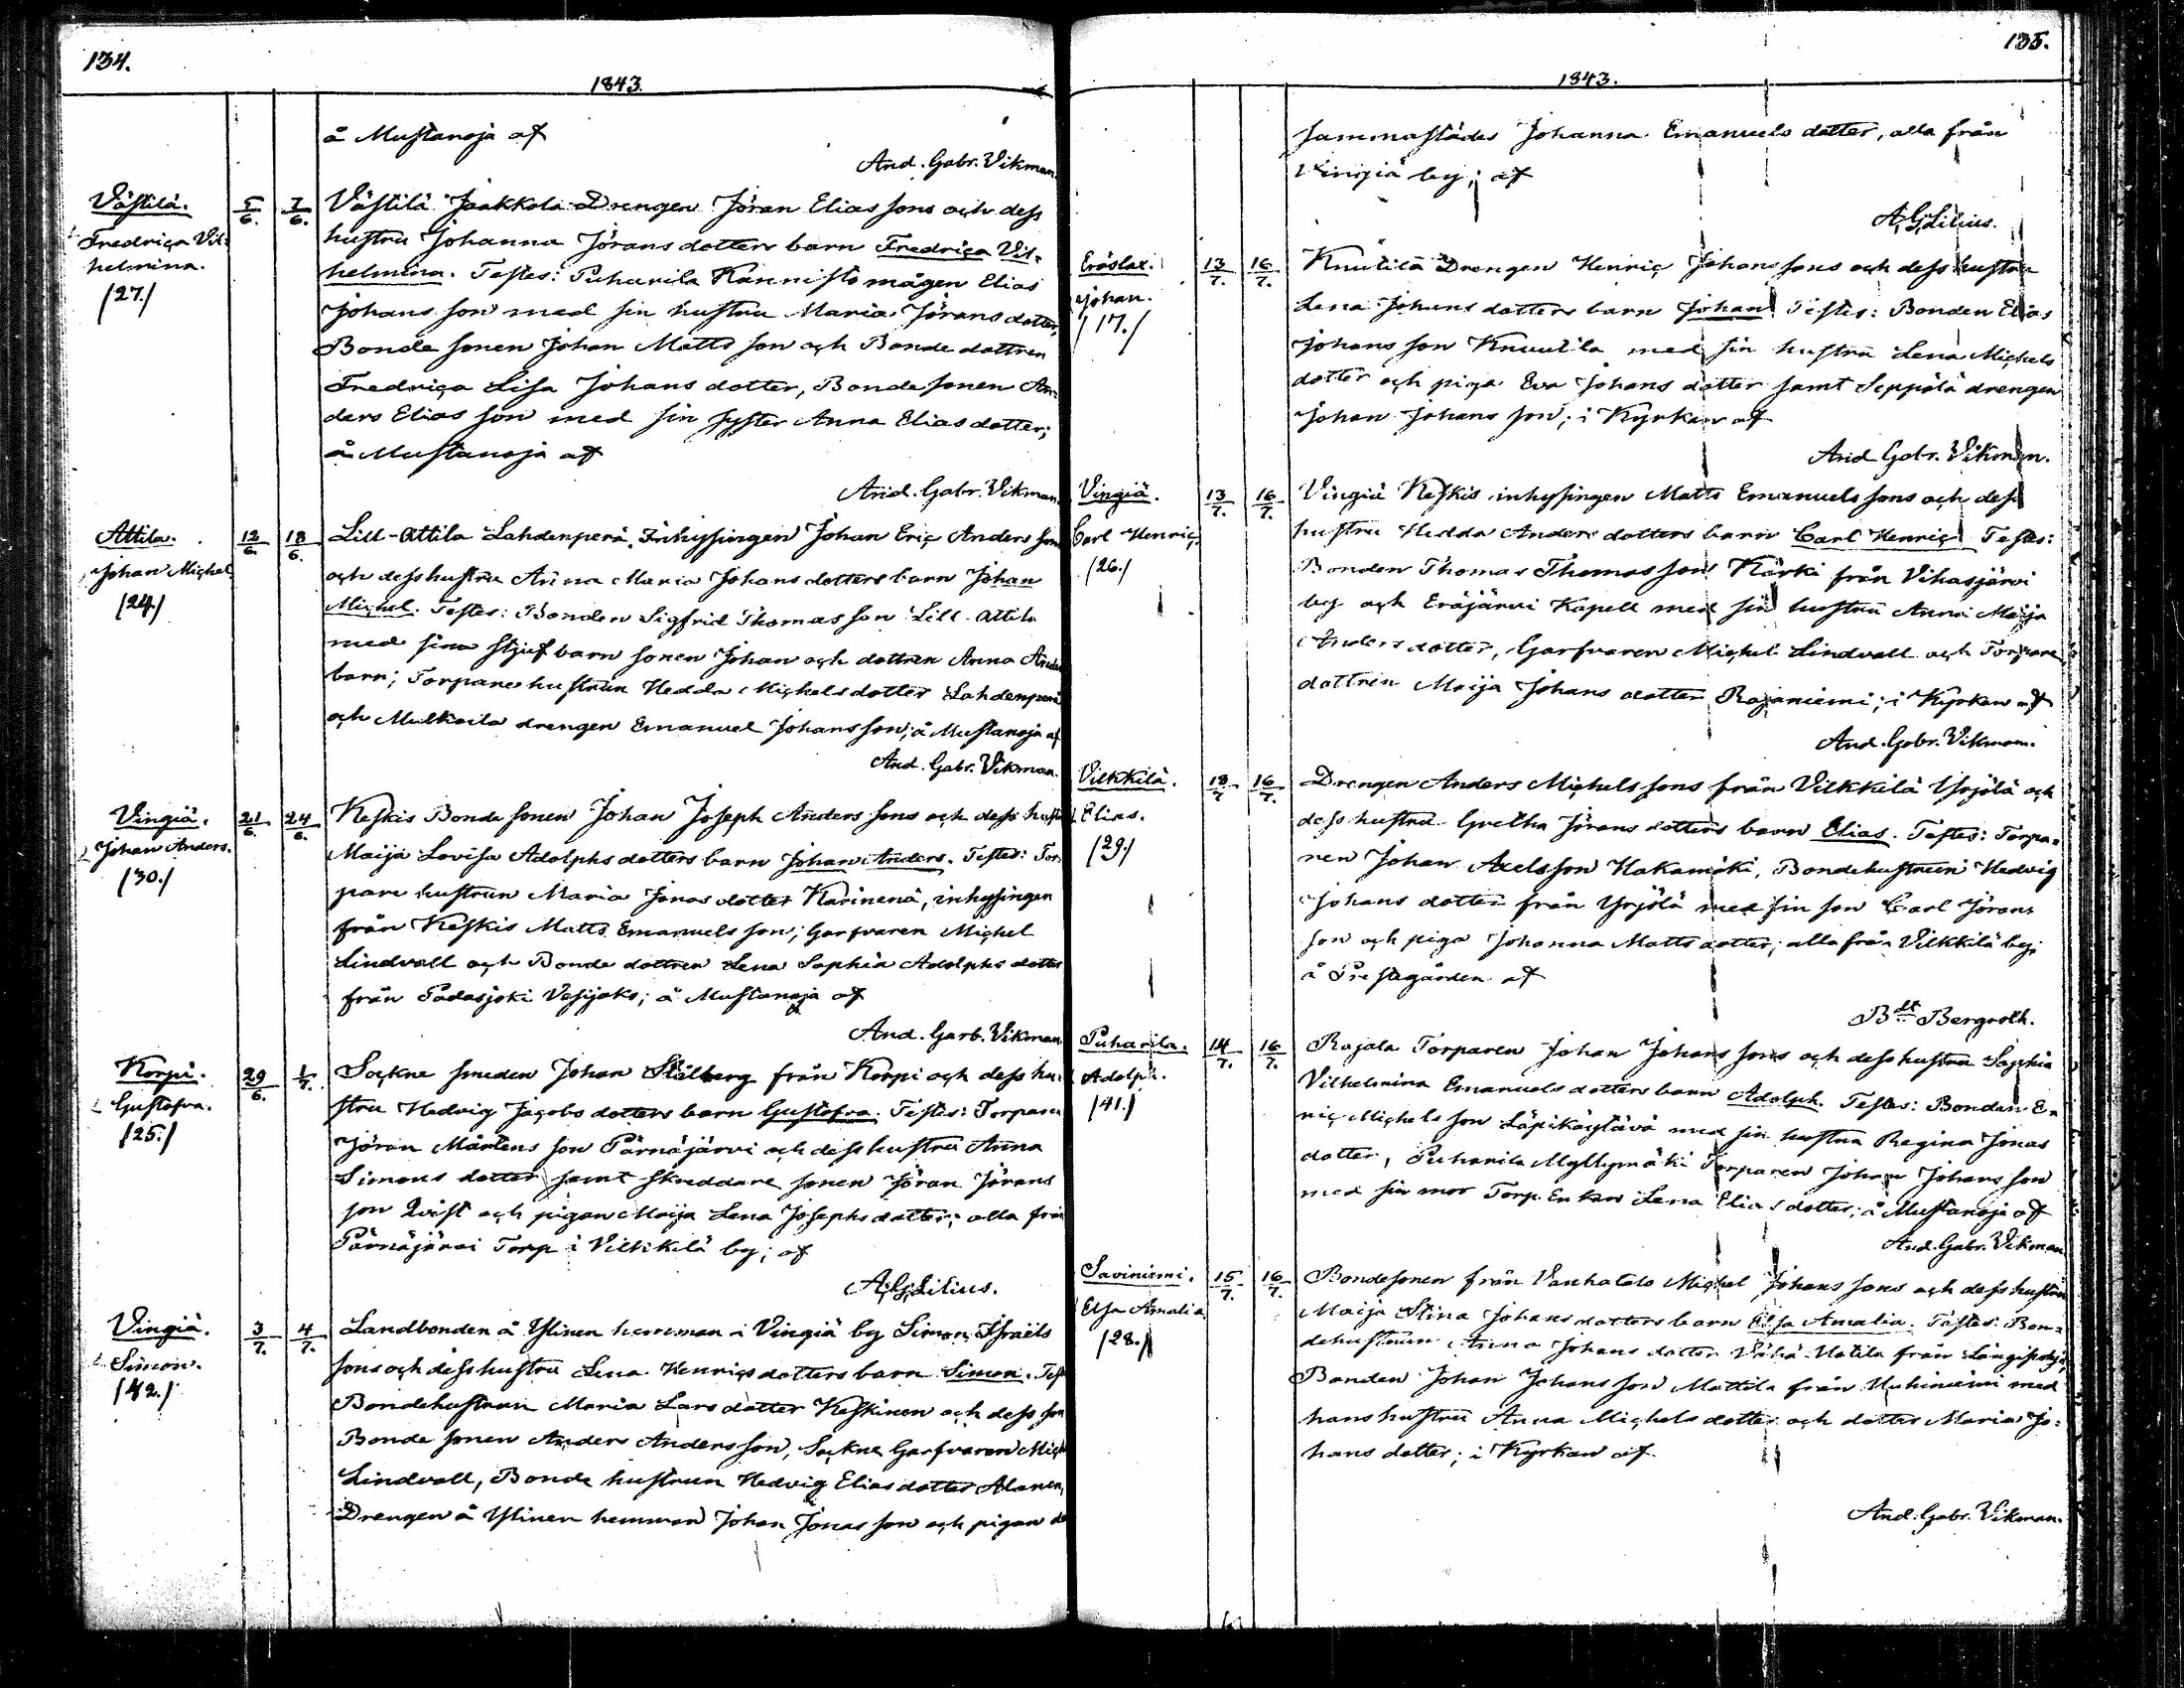 134.
1843.
å Mustanoja af
And. Gabr. Vikman.
Västilä.
Fredrica Vil=
helmina.
/27./
5/6.
7/6.
Västilä Jaakkola Drengen Jöran Elias sons och dess
hustru Johanna Jörans dotters barn Fredrica Vil=
helmina. Testes: Puharila Kannisto mågen Elias
Johans son med sin hustru Maria Jörans dotter,
Bonde sonen Johan Matts son och Bonde dottren
Fredrica Lisa Johans dotter, Bonde sonen An=
ders Elias son med sin syster Anna Elias dotter;
å Mustanoja af
And. Gabr. Vikman.
Attila.
Johan Michel
/24./
12/6.
18/6.
Lill-Attila Lahdenperä Inhysingen Johan Eric Anders sons
och dess hustru Anna Maria Johans dotters barn Johan
Michel. Testes: Bonden Sigfrid Thomas son Lill-Attila
med sina styfbarn sonen Johan och dottren Anna Anders
barn; Torpare hustrun Hedda Michels dotter Lahdenperä
och Mulkoila drengen Emanuel Johans son; å Mustanoja af
And. Gabr. Vikman.
Vingiä.
Johan Anders.
/30./
21/6.
24/6.
Keskis Bonde sonen Johan Joseph Anders sons och dess hustru
Maija Lovisa Adolphs dotters barn Johan Anders. Testes: Tor=
pare hustrun Maria Jonas dotter Karinenä, inhysingen
från Keskis Matts Emanuels son; Garfvaren Michel
Lindvall och Bonde dottren Lena Sophia Adolphs dotter
från Padasjoki Vesijako; å Mustanoja af
And. Garb. Vikman.
Korpi.
Gustafva.
/25./
29/6.
1/7.
Sockne smeden Johan Stålberg från Korpi och dess hu=
stru Hedvig Jacobs dotters barn Gustafva. Testes: Torparen
Jöran Mårtens son Pärnäjärvi och dess hustru Anna
Simons dotter samt skreddare sonen Jöran Jörans
son Qvist och pigan Maija Lena Josephs dotter; alla från
Pärnäjärvi Torp i Vilkkilä by; af
A.G. Lilius.
Vingiä.
Simon.
/42./
3/7.
4/7.
Landbonden å Ylinen hemman i Vingiä by Simon Israels
sons och dess hustru Lena Henrics dotters barn Simon. Test
Bondehustrun Maria Lars dotter Keskinen och dess son
Bonde sonen Anders Anders son, Sockne Garfvaren Mich
Lindvall, Bonde hustrun Hedvig Elias dotter Alanen,
Drengen å Ylinen hemman Johan Jonas son och pigan de
135.
1843.
sammastädes Johanna Emanuels dotter, alla från
Vingiä by; af
A.G. Lilius.
Eräslax.
Johan.
/17./
13/7.
16/7.
Knuutila Drengen Henric Johans sons och dess hustru
Lena Johans dotters barn Johan Testes: Bonden Elias
Johans son Knuutila med sin hustru Lena Michels
dotter och piga Eva Johans dotter samt Seppälä drengen
Johan Johans son; i Kyrkan af
And. Gabr. Vikman.
Vingiä.
Carl Henric.
/26./
13/7.
16/7.
Vingiä Keskis inhysingen Matts Emanuels sons och dess
hustru Hedda Anders dotters barn Carl Henric Testes:
Bonden Thomas Thomas son Kärki från Vihasjärvi
by och Eräjärvi Kapell med sin hustru Anna Maija
Anders dotter, Garfvaren Michel Lindvall och Torpare
dottren Maija Johans dotter Rajaniemi; i Kyrkan af
And. Gabr. Vikman.
Vilkkilä.
Elias.
/29./
13/7
16/7.
Drengen Anders Michels sons från Vilkkilä Yrjölä och
dess hustru Gretha Jörans dotters barn Elias. Testes: Torpa=
ren Johan Axelsson Hakamäki, Bondehustrun Hedvig
Johans dotter från Yrjölä med sin son Carl Jörans
son och piga Johanna Matts dotter; alla från Vilkkilä by;
å Prestegården af
Bdt Bergroth.
Puharila.
Adolph.
/41./
14/7.
16/7.
Rajala Torparen Johan Johans sons och dess hustru Sophia
Vilhelmina Emanuels dotters barn Adolph. Testes: Bonden E=
ric Michels son Läpikäytävä med sin hustru Regina Jonas
dotter, Puharila Myllymäki Torparen Johan Johans son
med sin mor Torp. Enkan Lena Elias dotter; å Mustanoja af
And. Gabr. Vikman
Saviniemi.
Elsa Amalia
/28./
15/7.
16/7.
Bondesonen från Vanhatalo Michel Johans sons och dess hustru
Maija Stina Johans dotters barn Elsa Amalia. Testes: Bon=
dehustrun Anna Johans dotter Vähä Uotila från Längipohja,
Bonden Johan Johans son Mattila från Uuhiniemi med
hans hustru Anna Michels dotter och dotter Maria Jo=
hans dotter; i Kyrkan af
And. Gabr. Vikman.